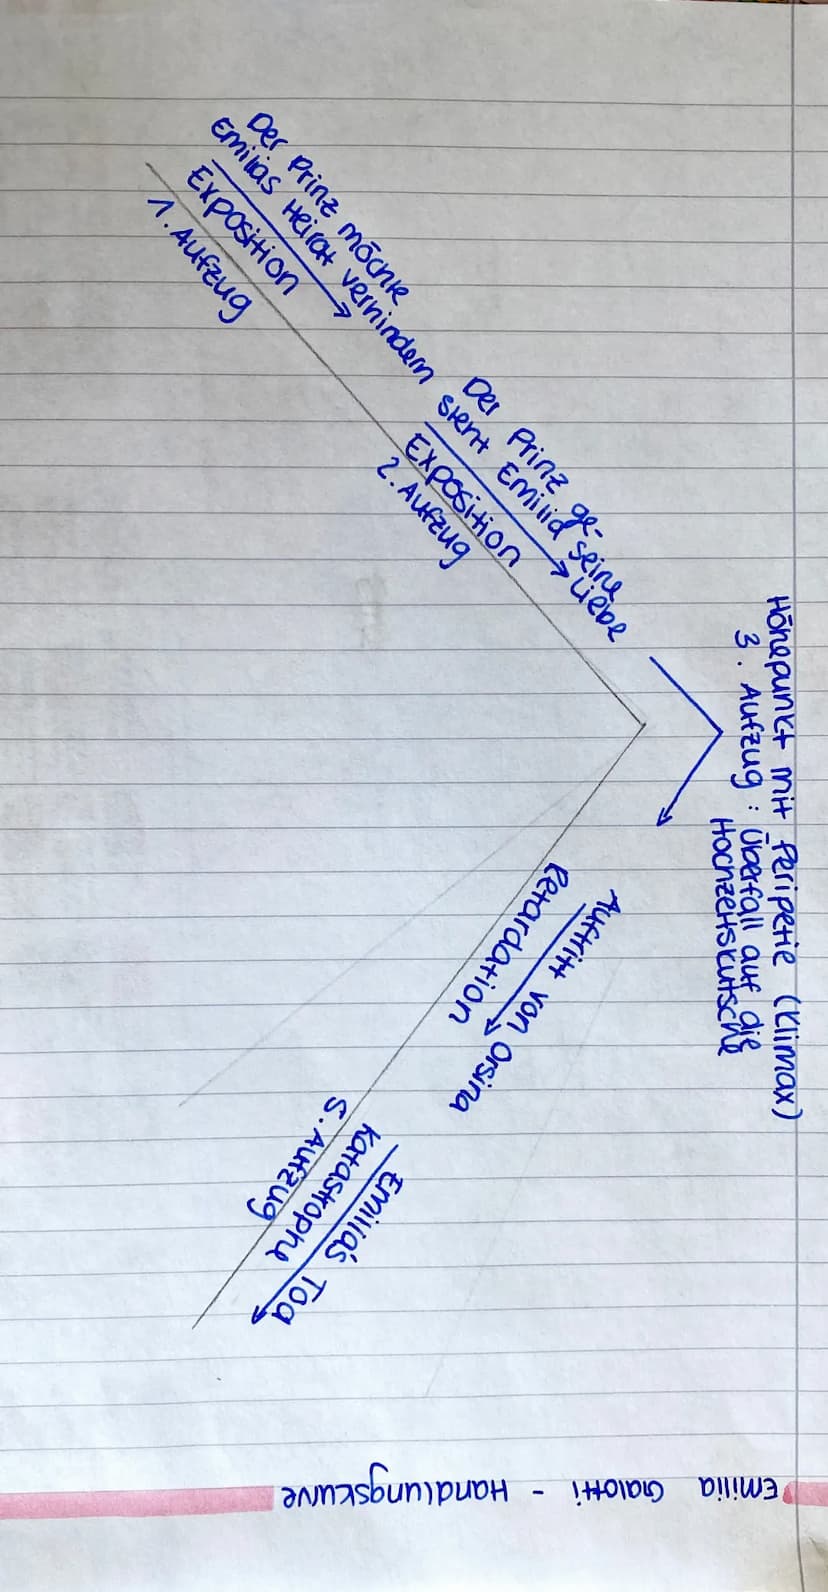 Emilia Galotti - Handlungskurve
Höhepunkt mit Peripetie (Klimax)
3. Aufzug: Überfall auf die
Hochzeitskutsche
Der Prinz möchte
Emilias Heirat verhindern
Exposition
1. Aufzug
Der Prinz ge-
steht Emilia seine
Liebe
Exposition
2. Aufzug
Auftritt von Orsina
Retardation
Emilia's Tod
Katastrophe
5. Aufzug